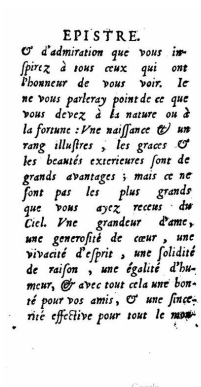 EPISTRE.
& d'admiration que vous in-
spirez à tous ceux qui ont
l'honneur de vous voir. Ie
ne vous parleray point de ce que
vous devez à la nature ou à
la fortune : Vne naissance & un
rang illustres, les graces &
les beautés exterieures sont de
grands avantages ; mais ce ne
sont pas les plus grands
que vous ayez receus du
Ciel. Vne grandeur d'ame,
une generosité de cœur, une
vivacité d'esprit, une solidité
de raison, une égalité d'hu-
meur, & avec tout cela une bon-
té pour vos amis, & une since-
rité effective pour tout le mon-